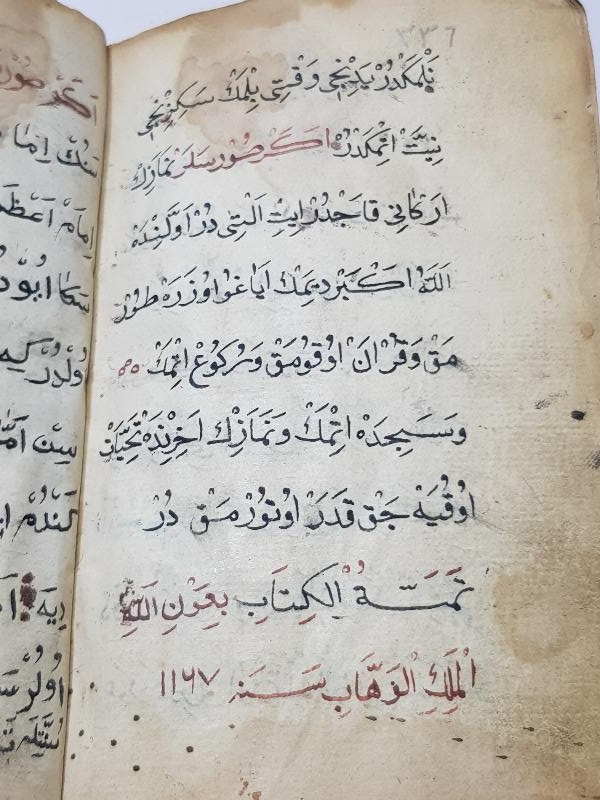 نلمكدر يدنجى وقتى بلمك سكزنجى
نيت اتمكدر اكر صورسلر نمازك
اركانى قاچدر ايت التى در اولنده
الله اكبر ديمك اياغ اوزره طور
مق وقران اوقومق وركوع اتمك
وسجده اتمك ونمازك اخرنده تحيات
اوقيه جق قدر اوتورمق در
تمة الكتاب بعون الله
الملك الوهاب سنه ١١٦٧
اكر صور
امام اعظم
اولدر كه